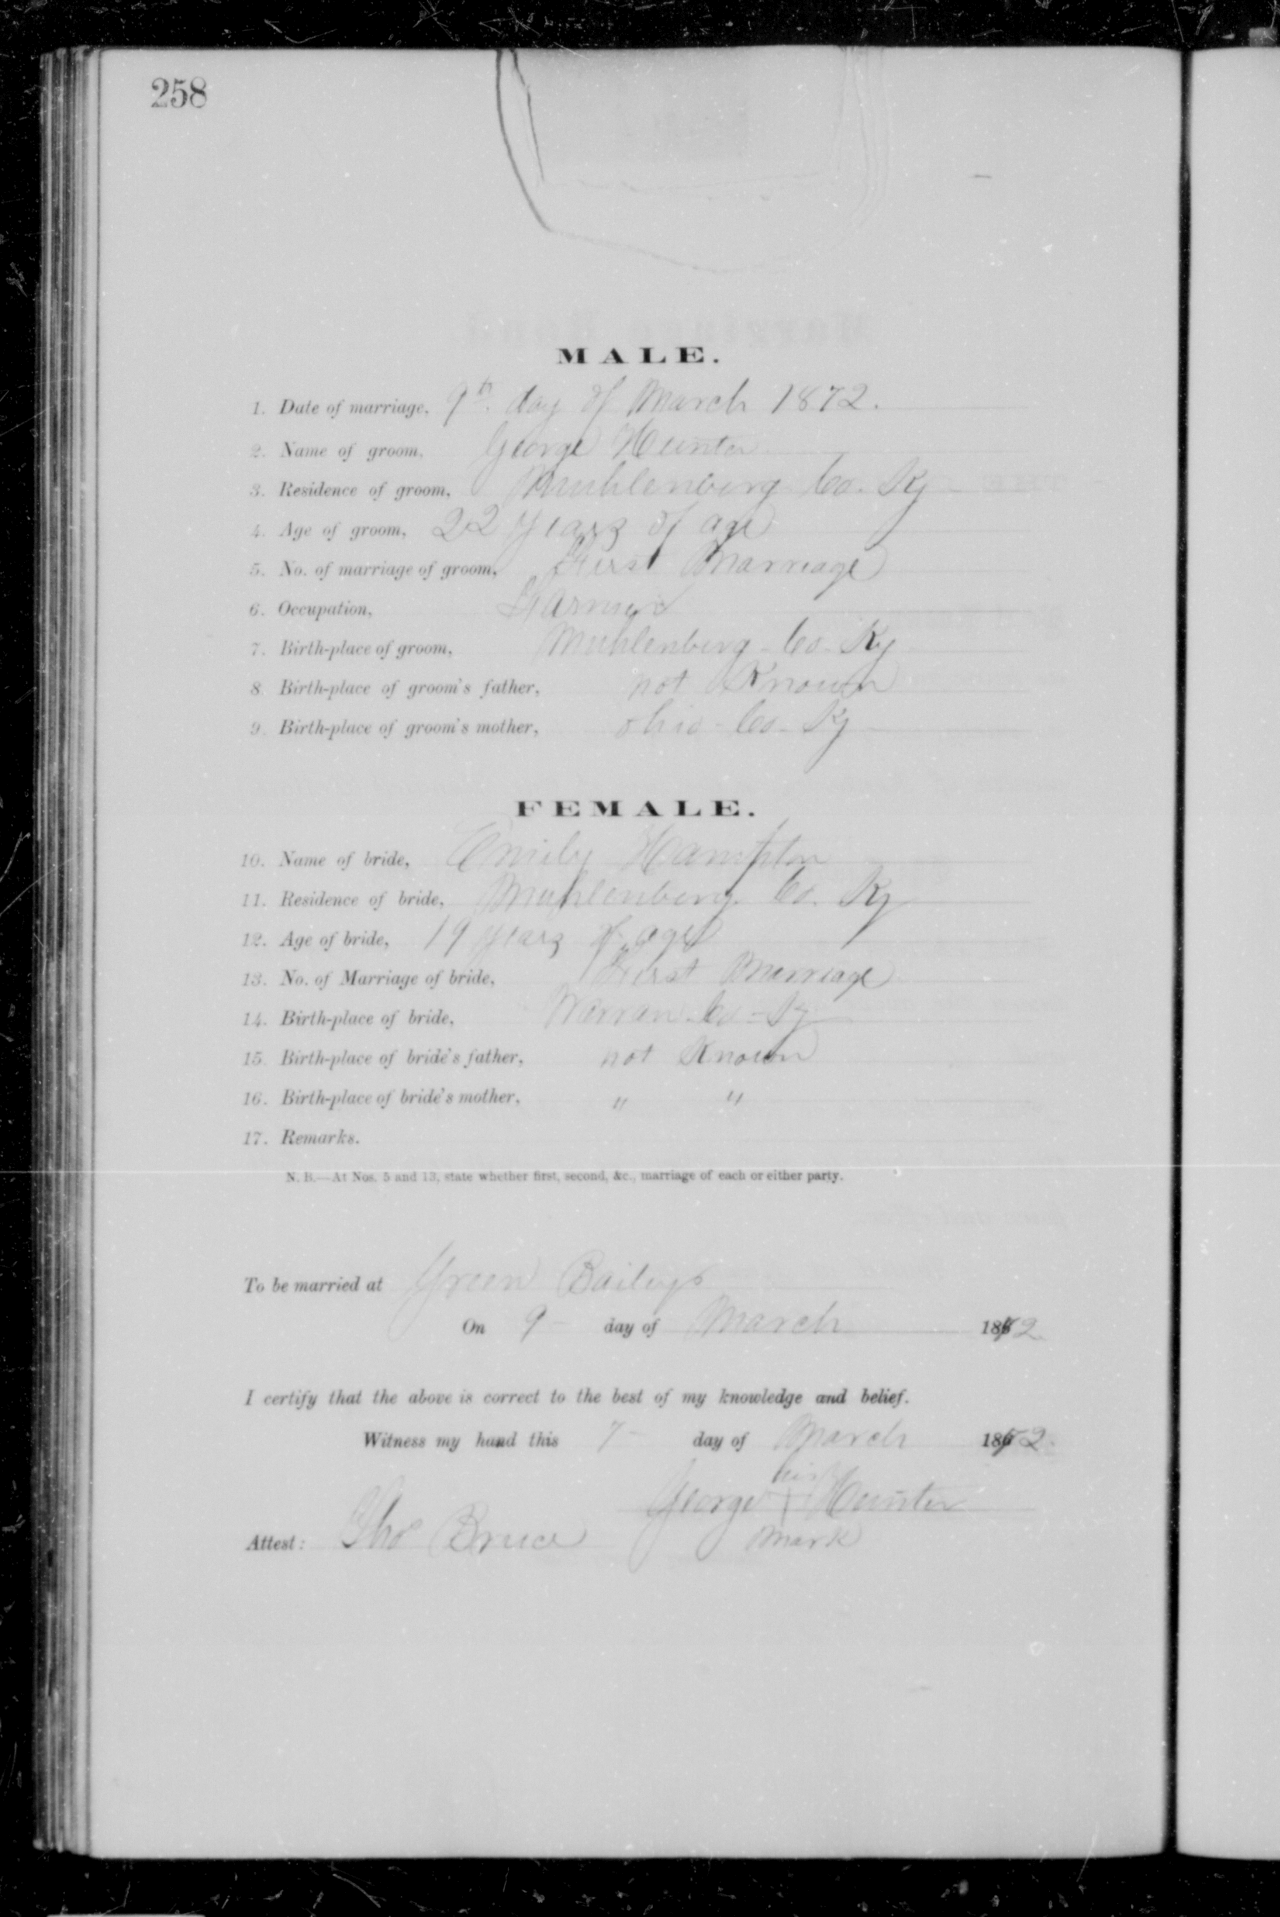 258
MALE.
1. Date of marriage, 9th day of March 1872.
2. Name of groom, George Hunter
3. Residence of groom, Muhlenberg Co. Ky
4. Age of groom, 22 years of age
5. No. of marriage of groom, First Marriage
6. Occupation, Farmer
7. Birth-place of groom, Muhlenberg Co. Ky
8. Birth-place of groom's father, not Known
9. Birth-place of groom's mother, Ohio Co. Ky
FEMALE.
10. Name of bride, Emily Hampton
11. Residence of bride, Muhlenberg Co. Ky
12. Age of bride, 19 years of age
13. No. of Marriage of bride, First Marriage
14. Birth-place of bride, Warran Co - Ky
15. Birth-place of bride's father, not Known
16. Birth-place of bride's mother, " "
17. Remarks.
N. B.—At Nos. 5 and 13, state whether first, second, &c., marriage of each or either party.
To be married at Green Baileys
On 9 - day of March 1872.
I certify that the above is correct to the best of my knowledge and belief.
Witness my hand this 7 - day of March 1872.
his
George Hunter
Attest: Thos Bruce mark